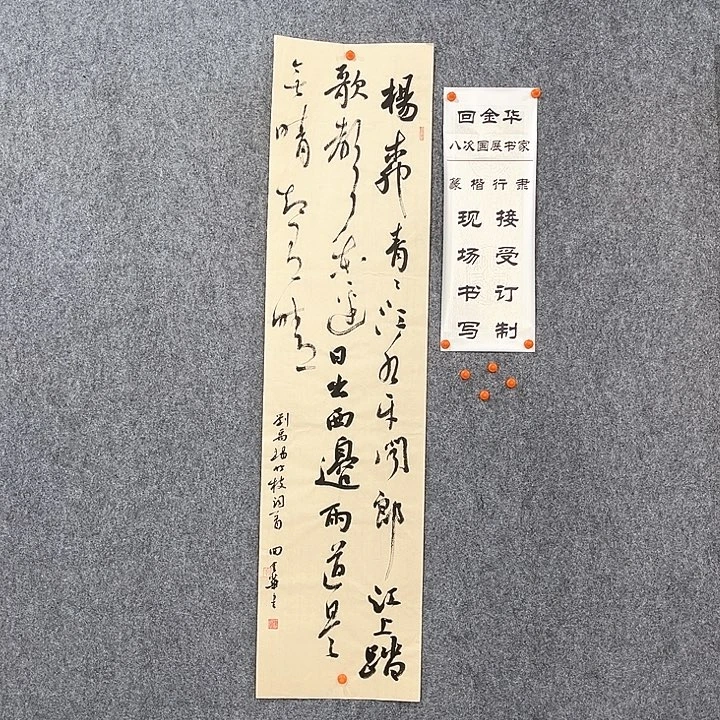 楊柳青〻江水平聞郎江上踏
歌聲東邊日出西邊雨道是
无晴却有晴
劉禹錫竹枝词一首 回金華書
回金华
八次国展书家
篆楷行隶
接受订制
现场书写